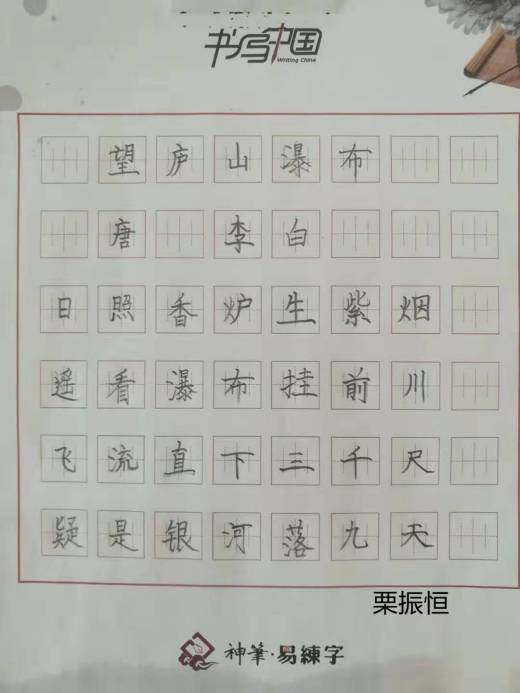 书写中国
Writing China
望庐山瀑布
唐 李白
日照香炉生紫烟
遥看瀑布挂前川
飞流直下三千尺
疑是银河落九天
栗振恒
神筆·易練字